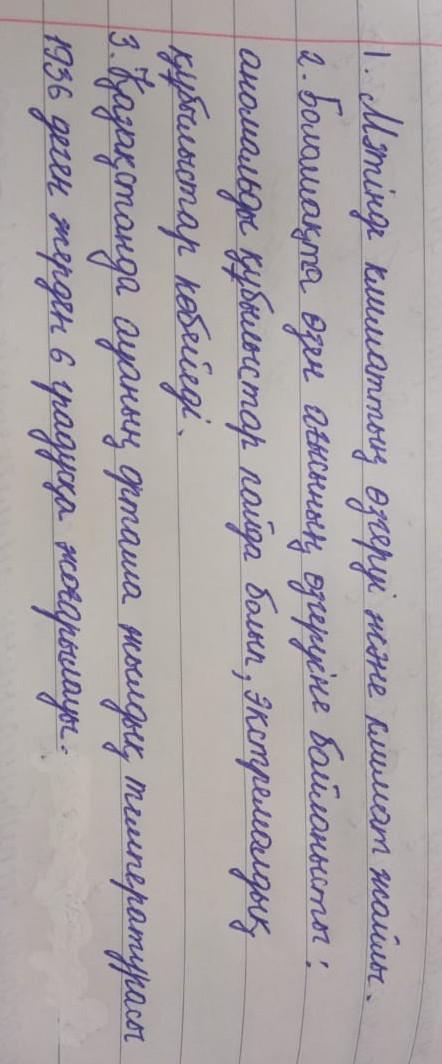 1. Мәтінде климаттың өзгеруі және климат жайлы.
2. Болашақта өзен ағысының өзгеруіне байланысты:
аномальды құбылыстар пайда болып, экстремалдық
құбылыстар көбейеді.
3. Қазақстанда ауаның орташа жылдық температурасы
1936 деген жерден 6 градусқа жоғарылауы.